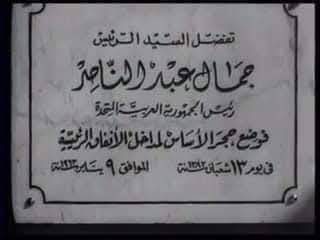 تفضل السيد الرئيس
جمال عبد الناصر
رئيس الجمهورية العربية المتحدة
فوضع حجر الأساس لمداخل الأنفاق الرئيسية
فى يوم ١٣ شعبان ١٣٨٢ﻫ الموافق ٩ يناير ١٩٦٣